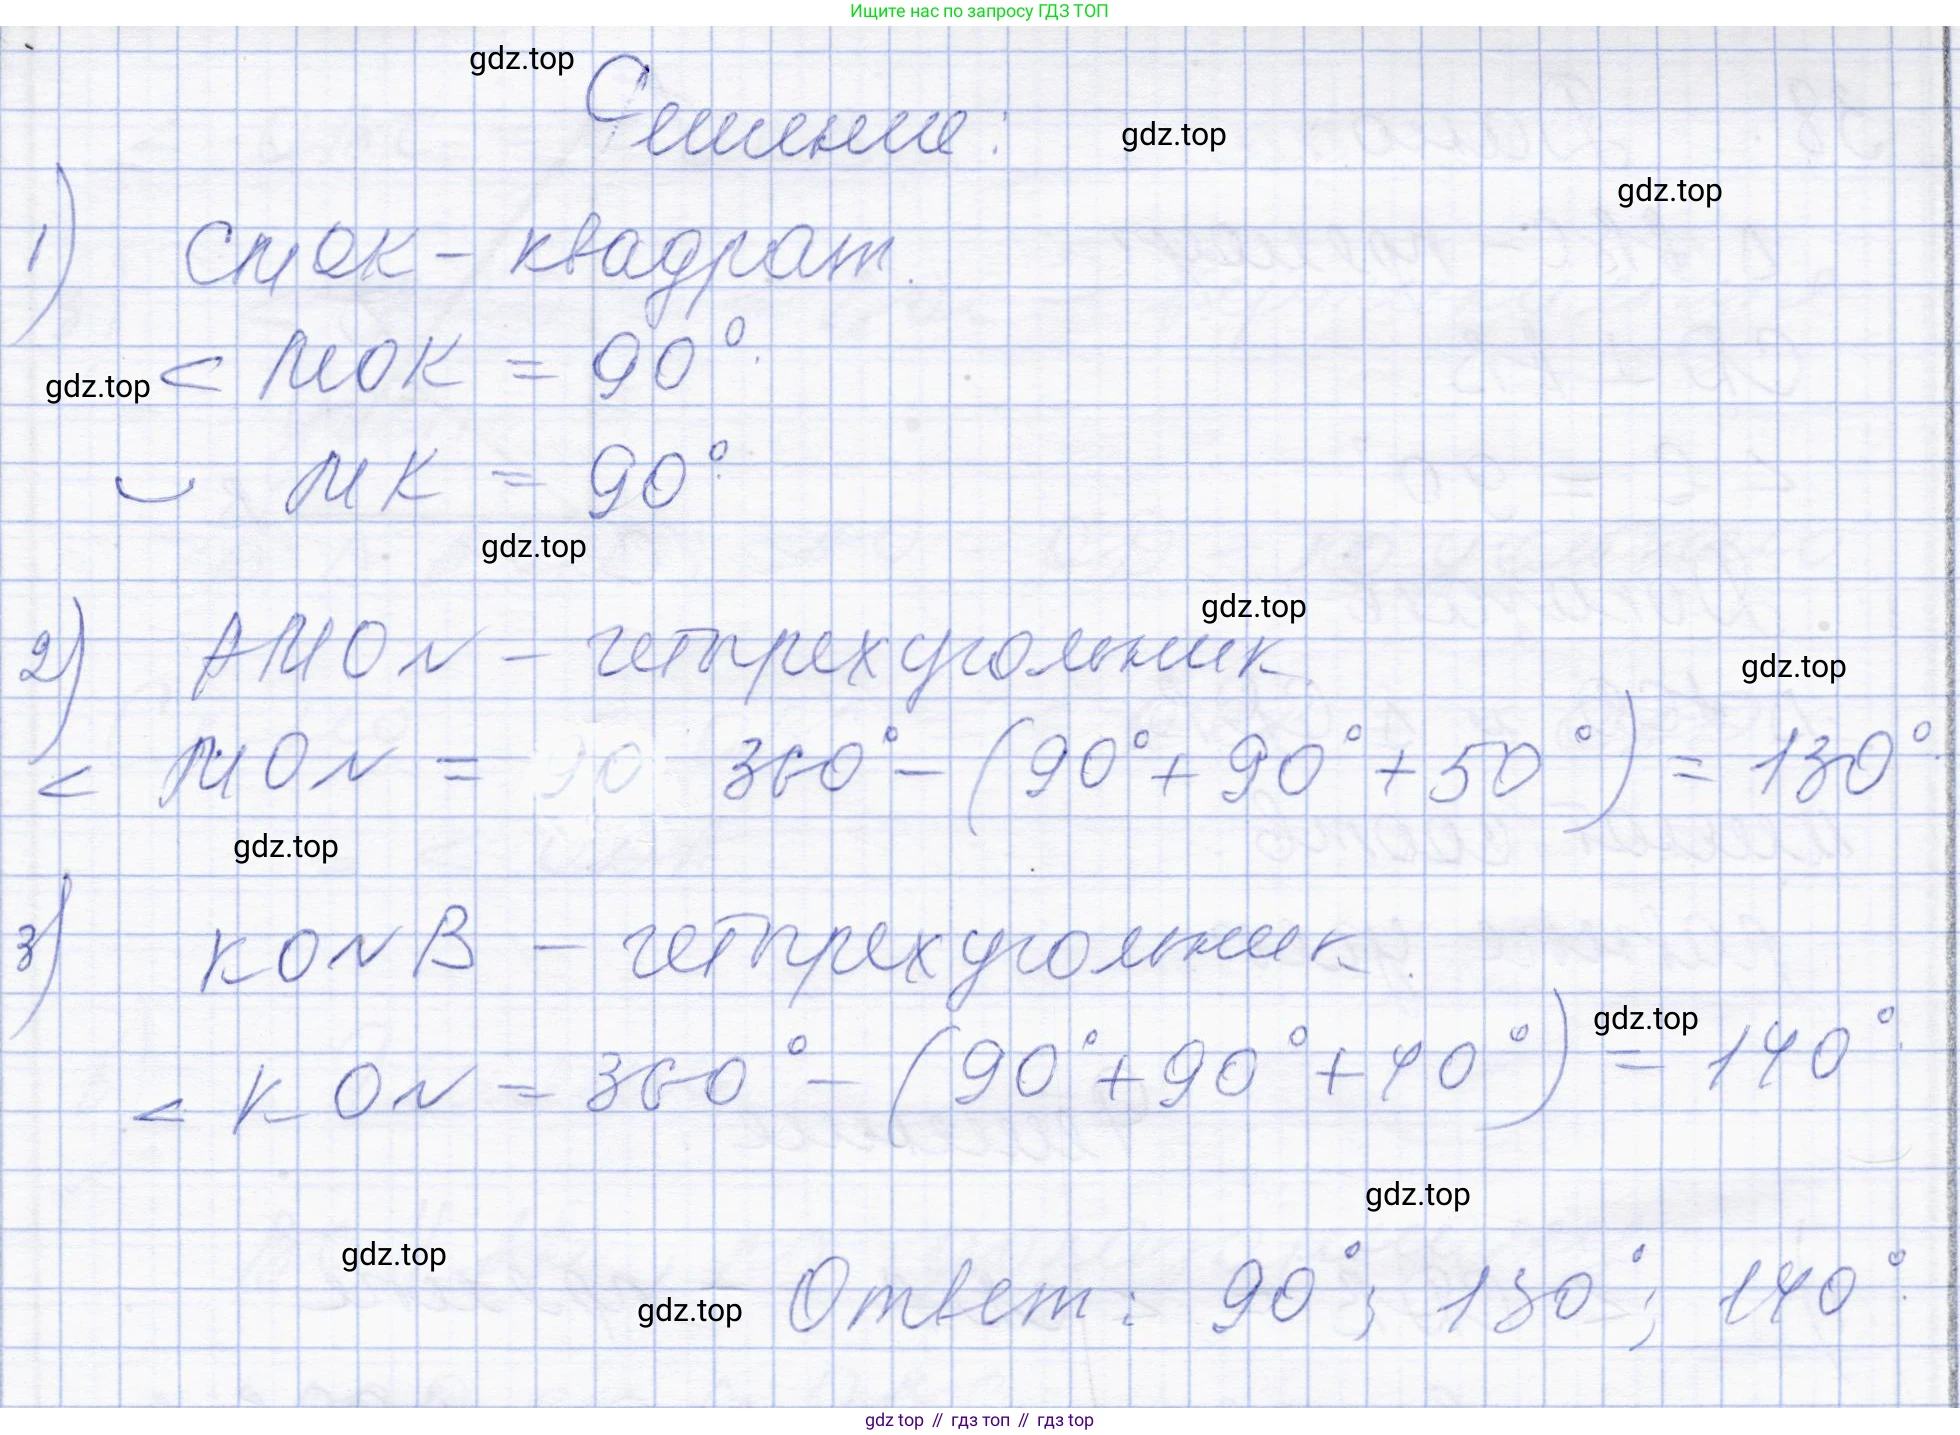 Ищите нас по запросу ГДЗ ТОП
gdz.top
Решение:
gdz.top
gdz.top
1) СМОК – квадрат.
< МОК = 90°.
gdz.top
◡ МК = 90°.
gdz.top
gdz.top
2) АМОN – четырехугольник.
gdz.top
< МОN = 360° – (90° + 90° + 50°) = 130°.
gdz.top
3) КОNВ – четырехугольник.
gdz.top
< КОN = 360° – (90° + 90° + 40°) = 140°.
gdz.top
gdz.top
gdz.top
Ответ: 90°; 130°; 140°.
gdz top // гдз топ // гдз top